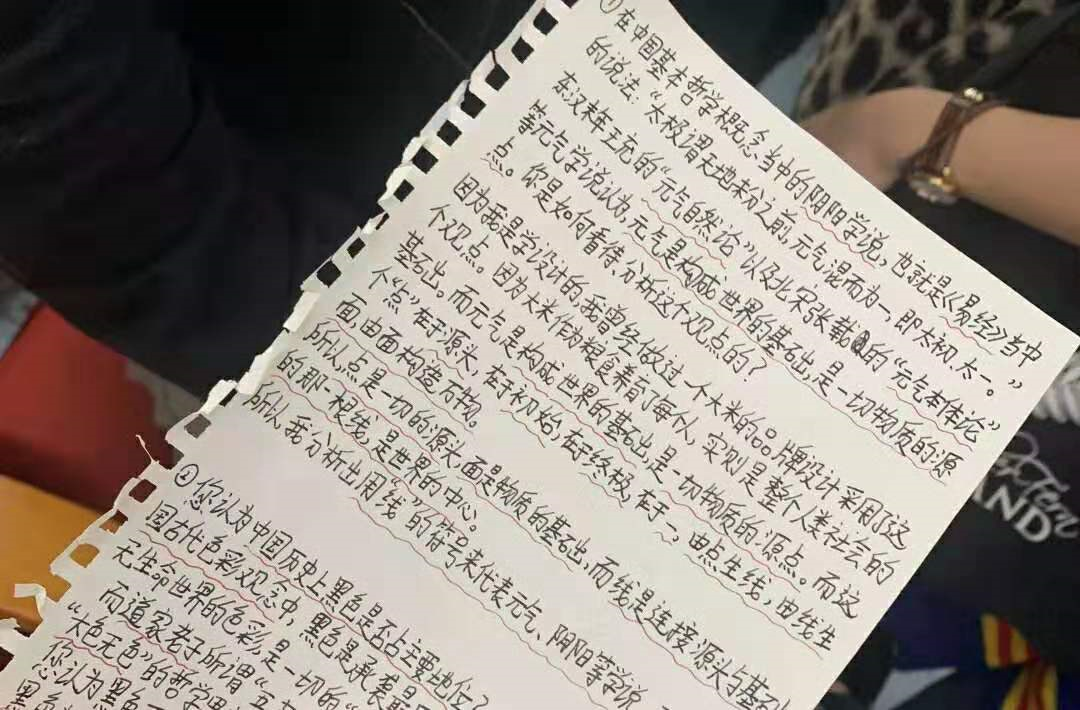 ①在中国基本哲学概念当中的阴阳学说，也就是《易经》当中
的说法：“太极谓天地未分之前，元气混而为一，即太初，太一。”
东汉末年王充的“元气自然论”以及北宋张载的“元气本体论”
等元气学说认为，元气是构成世界的基础出，是一切物质的源
点。你是如何看待、分析这个观点的？
因为我是学设计的，我曾经做过一个大米的品牌设计采用了这
个观点。因为大米作为粮食养育了每个人，实则是整个人类社会的
基础出。而元气是构成世界的基础出是一切物质的源点。而这
个“点”在于源头，在于初始，在于终极，在于一，由点生线，由线生
面，由面构造万物。
所以，点是一切的源头，面是物质的基础出，而线是连接源头与基础出
的那一根线，是世界的中心。
所以，我分析出用“线”的符号来代表元气、阴阳等学说
②您认为中国历史上黑色是否占主要地位？
国古代色彩观念中，黑色是承袭
无生命世界的色彩，是一切的“
而道家老子所谓“五
“大色无色”的哲学
您认为黑色
黑色
FenTen
AND